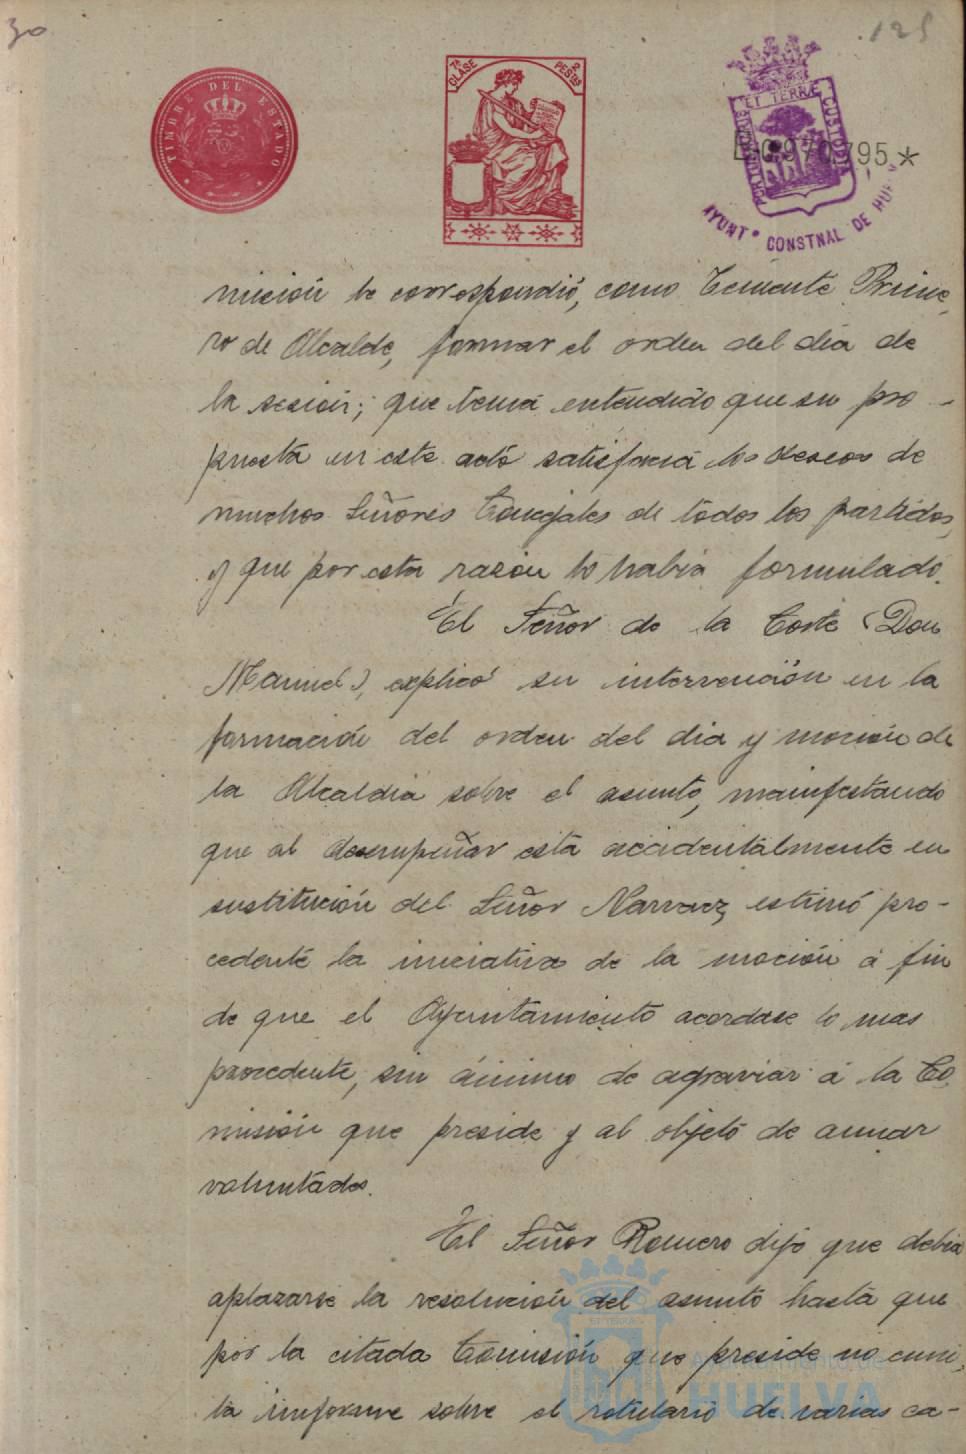 30
125
TIMBRE DEL ESTADO
7ª CLASE 2 PESTAS
PORTUS MARIS ET TERRÆ CUSTODIA
795*
AYUNTº CONSTNAL DE HUELVA
misión le correspondió, como Teniente Prime,
ro de Alcalde, formar el orden del dia de
la sesión; que tenia entendido que su pro-
puesta en este acto satisfacia los deseos de
muchos Señores Concejales de todos los partidos,
y que por esta razón lo habia formulado.
El Señor de la Corte (Don
Manuel), explicó su intervención en la
formación del orden del dia y moción de
la Alcaldia sobre el asunto, manifestando
que al desempeñar esta accidentalmente en
sustitución del Señor Narvaez, estimó pro-
cedente la iniciativa de la moción á fin
de que el Ayuntamiento acordase lo mas
procedente, sin ánimo de agraviar á la Co,
misión que preside y al objeto de aunar
voluntades.
El Señor Romero dijo que debia
aplazarse la resolución del asunto hasta que
por la citada Comisión que preside no emi,
ta informe sobre el rotulario de varias ca-
Ayuntamiento de
HUELVA